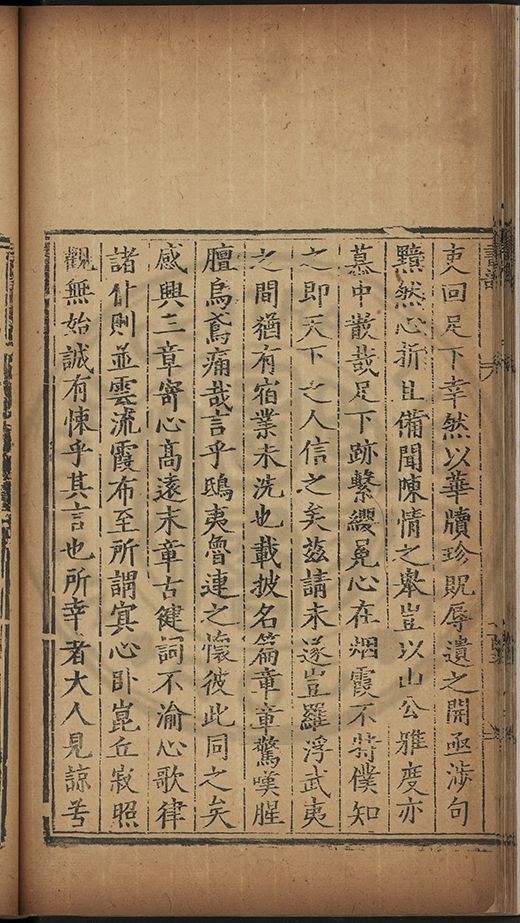 吏回足下幸然以華牘珍貺辱遺之開函涉句
黯然心折且備聞陳情之舉豈以山公雅度亦
慕中散哉足下跡繫纓冕心在烟霞不特僕知
之即天下之人信之矣茲請未遂豈羅浮武夷
之間猶有宿業未洗也載披名篇章章驚嘆腥
膻烏鳶痛哉言乎鴟夷魯連之懷彼此同之矣
感興三章寄心高遠末章古健詞不渝心歌律
諸什則並雲流霞布至所謂寘心卧崑丘寂照
觀無始誠有悚乎其言也所幸者大人見諒号